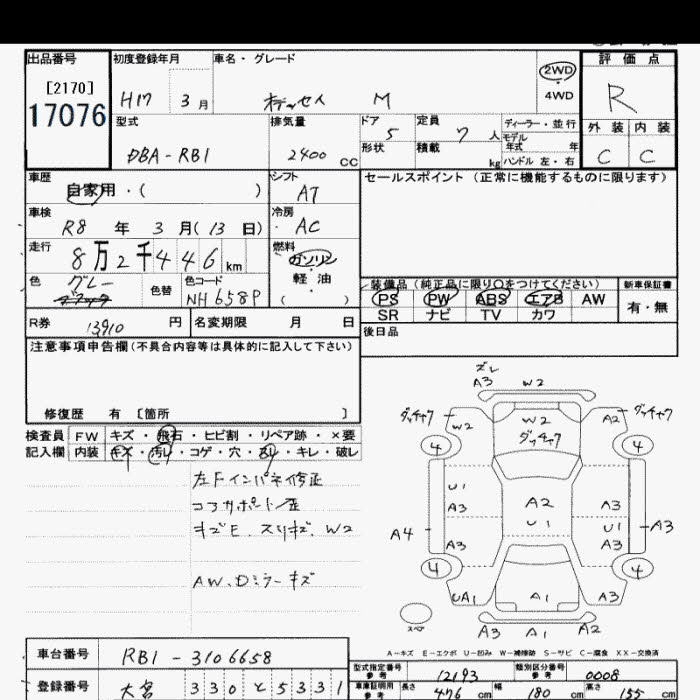 出品番号 初度登録年月 車名・グレード 2WD 評価点
[2170] 4WD
17076 H17 3月 オデッセイ M R
型式 排気量 ドア 定員 ディーラー・並行 外装 内装
DBA-RB1 2400cc 5 7人 モデル年式 年
形状 積載 kg ハンドル 左・右 C C
車歴 自家用・( ) シフト AT セールスポイント (正常に機能するものに限ります)
車検 R8年3月(13日) 冷房 AC
走行 8万2千446km 燃料 ガソリン・軽油 ( )
色 グレー 色替 色コード NH658P 装備品(純正品に限り○をつけてください) 新車保証書
PS PW ABS エアB AW 有・無
SR ナビ TV カワ
R券 13910円 名変期限 月 日 後日品
注意事項申告欄(不具合内容等は具体的に記入して下さい)
修復歴 有 [箇所 ]
検査員 FW キズ・飛石・ヒビ割・リペア跡・×要
記入欄 内装 キズ・汚レ・コゲ・穴・スレ・キレ・破レ
左Fインパネ修正
コアサポート歪
キズE、スリキズ、W2
AW、Dミラーキズ
ズレ
A3 W2
ダッチャク W2 W2 A2 ダッチャク
ダッチャク
4 4
U1 A2 A3
A3 U1 U1
A4 A3 A3 A3
4 4
UA1 A1 A3
スペア
A3 A1 A2
A-キズ E-エクボ U-凹み W-補修跡 S-サビ C-腐食 XX-交換済
車台番号 RB1-3106658
型式指定番号 参考 12193 類別区分番号 参考 0008
登録番号 330 と 5331
車庫証明用 参考 長さ 476cm 幅 180cm 高さ 155cm